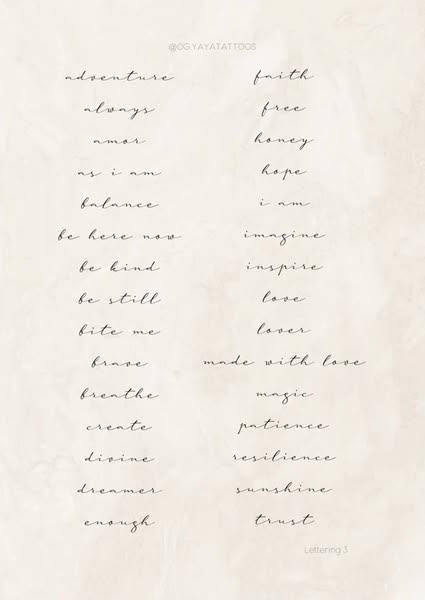 @OGYAYATATTOOS
adventure
always
amor
as i am
balance
be here now
be kind
be still
bite me
brave
breathe
create
divine
dreamer
enough
faith
free
honey
hope
i am
imagine
inspire
love
lover
made with love
magic
patience
resilience
sunshine
trust
Lettering 3